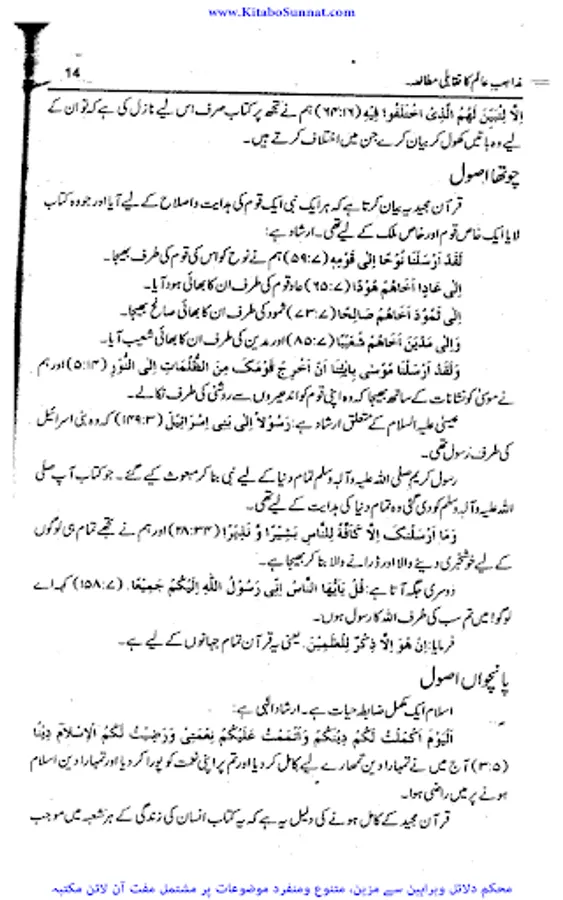 www.KitaboSunnat.com
مذاہب عالم کا تقابلی مطالعہ
14
اِلَّا لِتُبَيِّنَ لَهُمُ الَّذِى اخْتَلَفُوْا فِيْهِ (۶۴:۱۶) ہم نے تجھ پر کتاب صرف اس لیے نازل کی ہے کہ تو ان کے
لیے وہ باتیں کھول کر بیان کرے جن میں اختلاف کرتے ہیں۔
چوتھا اصول
قرآن مجید یہ بیان کرتا ہے کہ ہر ایک نبی ایک قوم کی ہدایت و اصلاح کے لیے آیا اور جو وہ کتاب
لایا ایک خاص قوم اور خاص ملک کے لیے تھی۔ ارشاد ہے:
لَقَدْ اَرْسَلْنَا نُوْحًا اِلٰى قَوْمِهٖ (۵۹:۷) ہم نے نوح کو اس کی قوم کی طرف بھیجا۔
اِلٰى عَادٍ اَخَاهُمْ هُوْدًا (۶۵:۷) عاد قوم کی طرف ان کا بھائی ہود آیا۔
اِلٰى ثَمُوْدَ اَخَاهُمْ صَالِحًا (۷۳:۷) ثمود کی طرف ان کا بھائی صالح بھیجا۔
وَاِلٰى مَدْيَنَ اَخَاهُمْ شُعَيْبًا (۸۵:۷) اور مدین کی طرف ان کا بھائی شعیب آیا۔
وَلَقَدْ اَرْسَلْنَا مُوْسٰى بِاٰيٰتِنَا اَنْ اَخْرِجْ قَوْمَكَ مِنَ الظُّلُمَاتِ اِلَى النُّوْرِ (۵:۱۴) اور ہم
نے موسیٰ کو نشانات کے ساتھ بھیجا کہ وہ اپنی قوم کو اندھیروں سے روشنی کی طرف نکالے۔
عیسیٰ علیہ السلام کے متعلق ارشاد ہے: رَسُوْلاً اِلٰى بَنِى اِسْرَائِيْلَ (۱۴۹:۳) کہ وہ بنی اسرائیل
کی طرف رسول تھی۔
رسول کریم صلی اللہ علیہ و آلہ وسلم تمام دنیا کے لیے نبی بنا کر مبعوث کیے گئے۔ جو کتاب آپ صلی
اللہ علیہ و آلہ وسلم کو دی گئی وہ تمام دنیا کی ہدایت کے لیے تھی۔
وَمَا اَرْسَلْنٰكَ اِلَّا كَافَّةً لِّلنَّاسِ بَشِيْرًا وَّ نَذِيْرًا (۲۸:۳۴) اور ہم نے تجھے تمام ہی لوگوں
کے لیے خوشخبری دینے والا اور ڈرانے والا بنا کر بھیجا ہے۔
دوسری جگہ آتا ہے: قُلْ يٰاَيُّهَا النَّاسُ اِنِّى رَسُوْلُ اللّٰهِ اِلَيْكُمْ جَمِيْعًا۔ (۱۵۸:۷) کہہ اے
لوگو! میں تم سب کی طرف اللہ کا رسول ہوں۔
فرمایا: اِنْ هُوَ اِلَّا ذِكْرٌ لِّلْعٰلَمِيْنَ۔ یعنی یہ قرآن تمام جہانوں کے لیے ہے۔
پانچواں اصول
اسلام ایک مکمل ضابطہ حیات ہے۔ ارشاد الٰہی ہے:
اَلْيَوْمَ اَكْمَلْتُ لَكُمْ دِيْنَكُمْ وَاَتْمَمْتُ عَلَيْكُمْ نِعْمَتِىْ وَرَضِيْتُ لَكُمُ الْاِسْلَامَ دِيْنًا
(۳:۵) آج میں نے تمہارا دین تمہارے لیے کامل کر دیا اور تم پر اپنی نعمت کو پورا کر دیا اور تمہارا دین اسلام
ہونے پر میں راضی ہوا۔
قرآن مجید کے کامل ہونے کی دلیل یہ ہے کہ یہ کتاب انسان کی زندگی کے ہر شعبہ میں موجب
محکم دلائل وبراہین سے مزین، متنوع ومنفرد موضوعات پر مشتمل مفت آن لائن مکتبہ